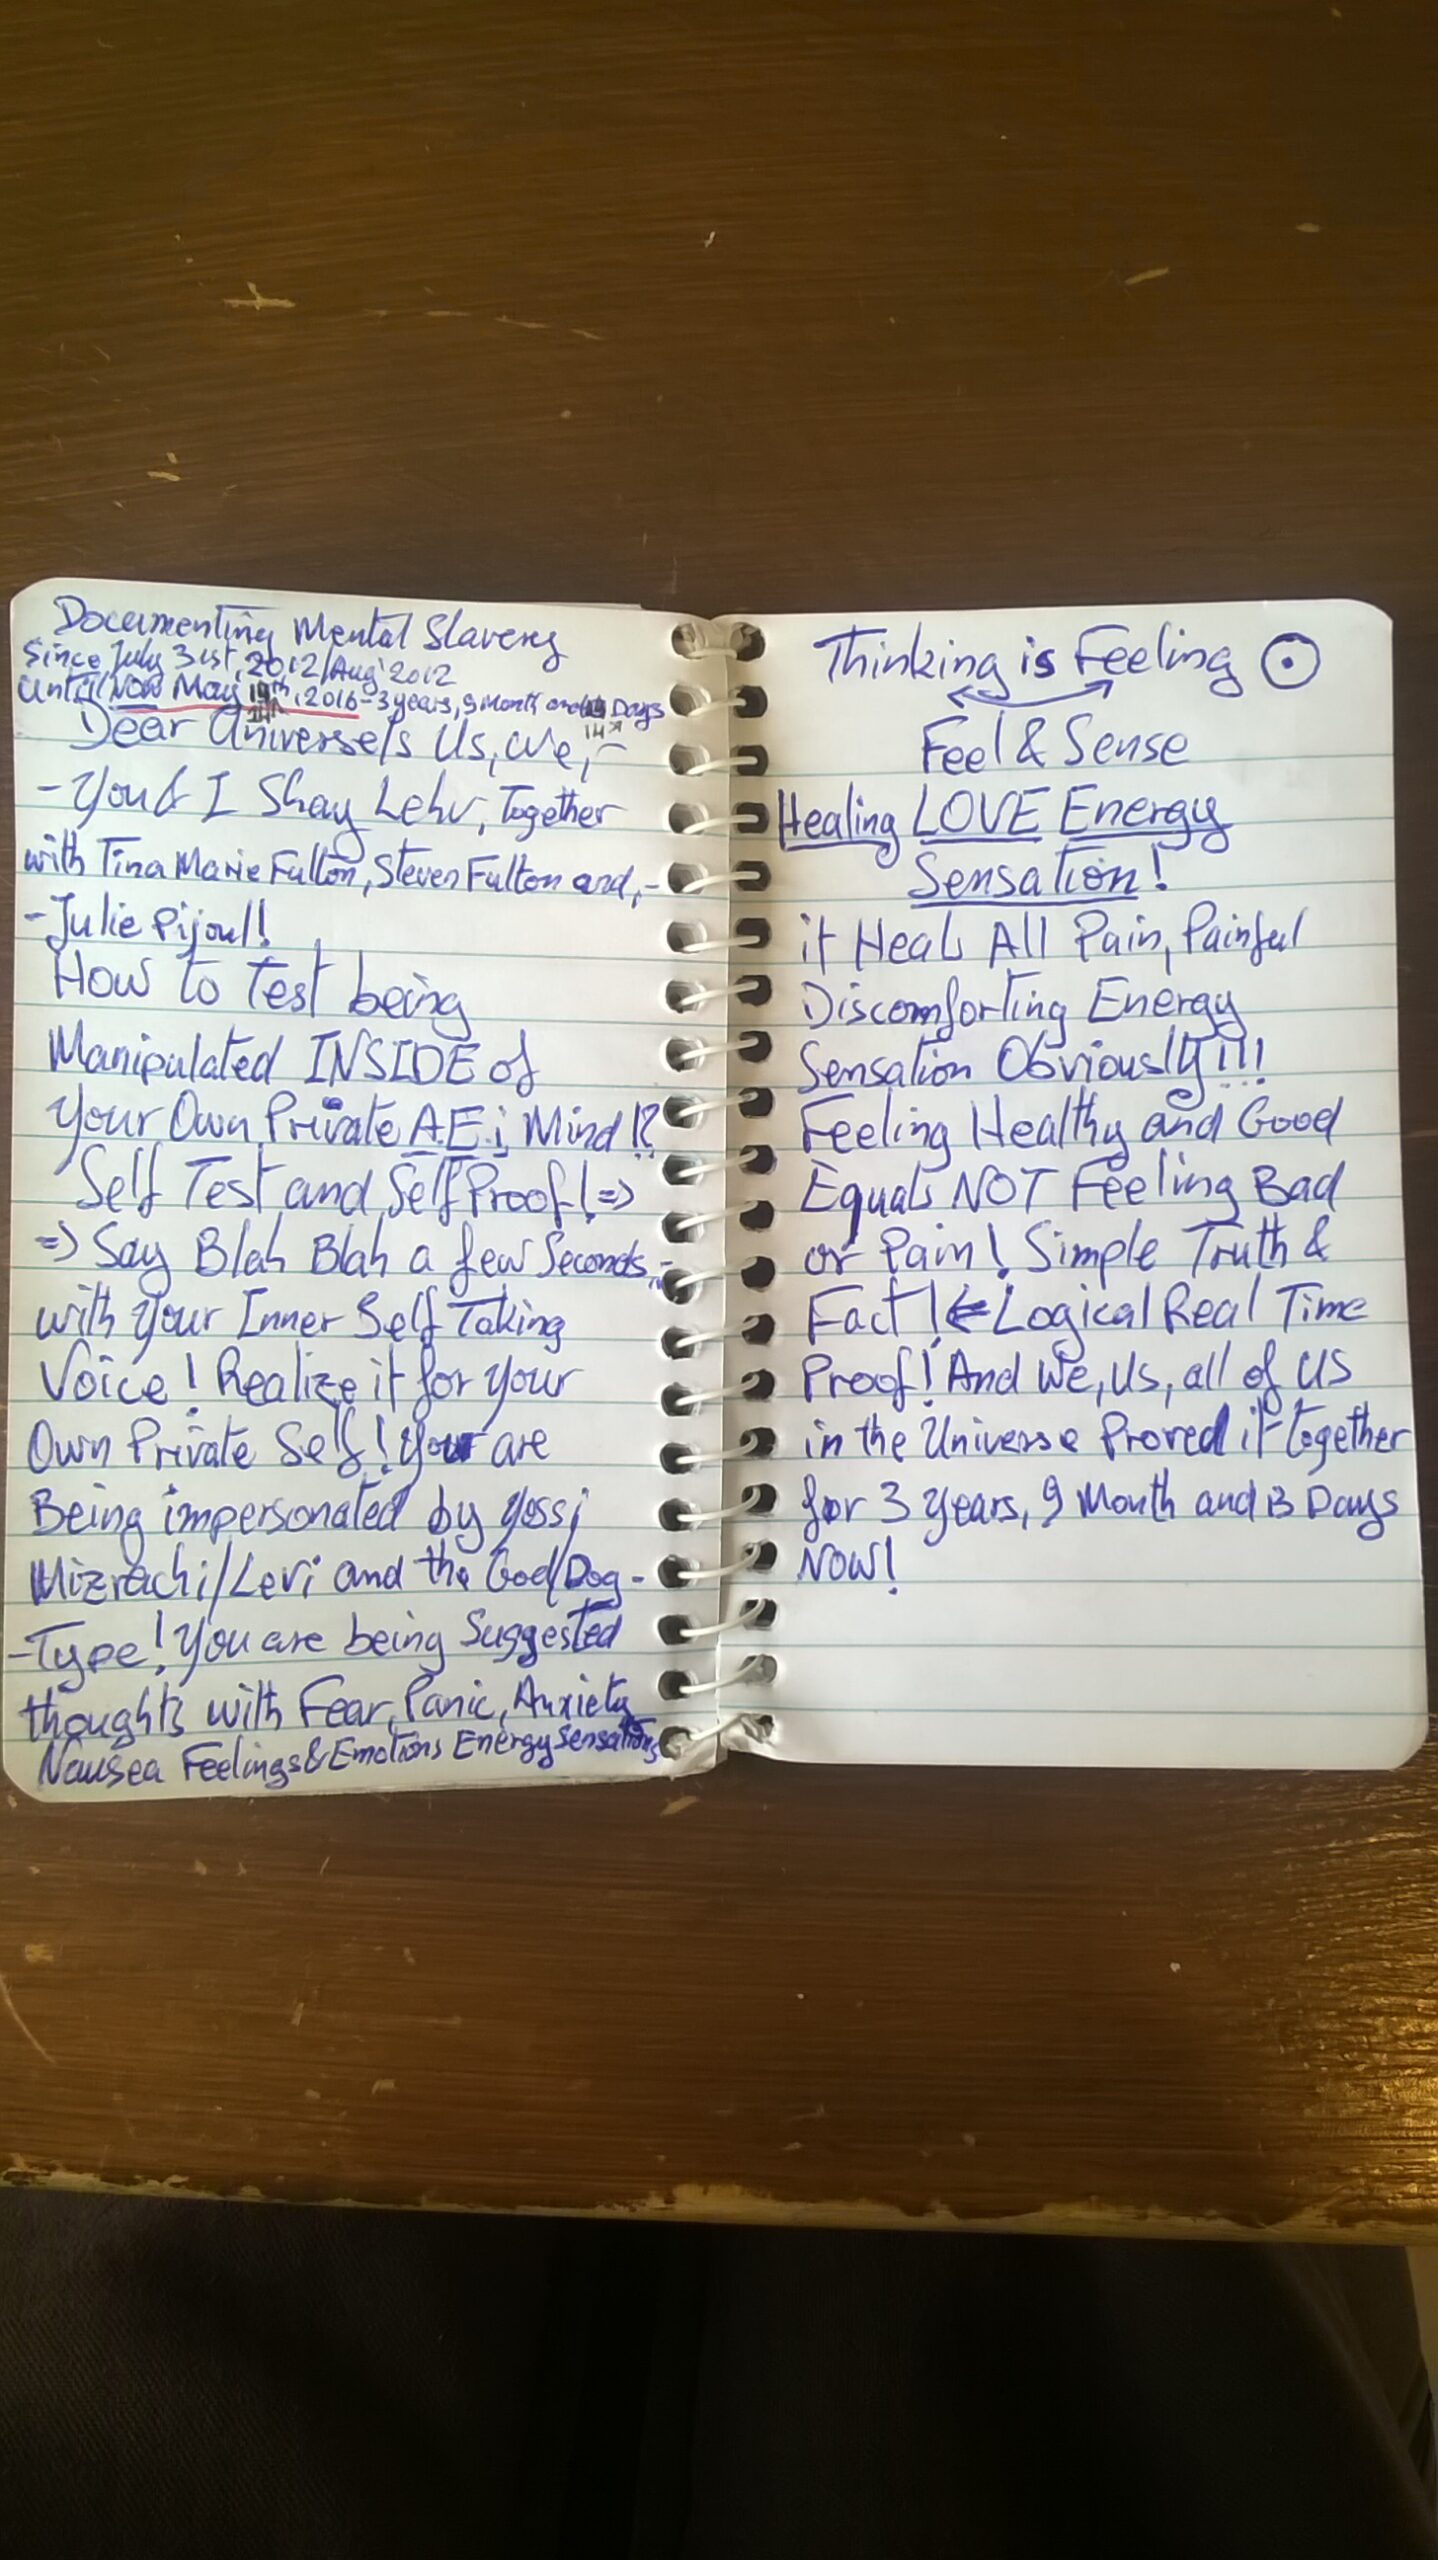 Documenting Mental Slavery
Since July 31st, 2012/Aug' 2012
Until Now May 19th, 2016 - 3 years, 9 Month and Days
14th 14
Dear Universe/s Us, We, -
- You & I Shay Lehv, Together
with Tina Marie Fulton, Steven Fulton and, -
- Julie Pijoul!
How to Test being
Manipulated INSIDE of
Your Own Private A.E.i Mind!?
Self Test and Self Proof! =>
=> Say Blah Blah a few Seconds, -
with Your Inner Self Talking
Voice! Realize it for Your
Own Private Self! You are
Being impersonated by Yossi
Mizrachi/Levi and the God/Dog -
- Type! You are being Suggested
thoughts with Fear, Panic, Anxiety
Nausea Feelings & Emotions Energy Sensations
Thinking is Feeling
Feel & Sense
Healing LOVE Energy
Sensation!
it Heals All Pain, Painful
Discomforting Energy
Sensation Obviously!!!
Feeling Healthy and Good
Equals NOT Feeling Bad
or Pain! Simple Truth &
Fact! <= Logical Real Time
Proof! And We, Us, all of US
in the Universe Proved it together
for 3 Years, 9 Month and 13 Days
NOW!